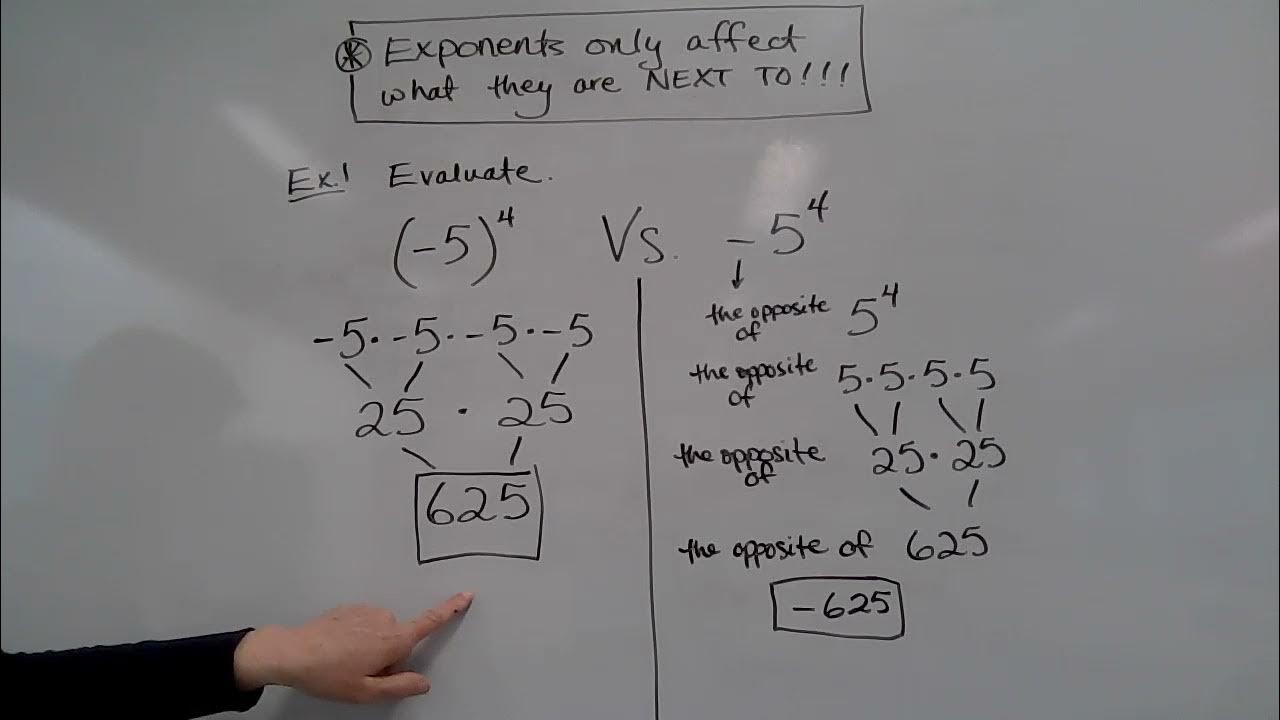 ⊛ Exponents only affect
what they are NEXT TO!!!
Ex.1 Evaluate.
(-5)⁴ Vs. -5⁴
-5·-5·-5·-5
25 · 25
625
the opposite of 5⁴
the opposite of 5·5·5·5
the opposite of 25·25
the opposite of 625
-625